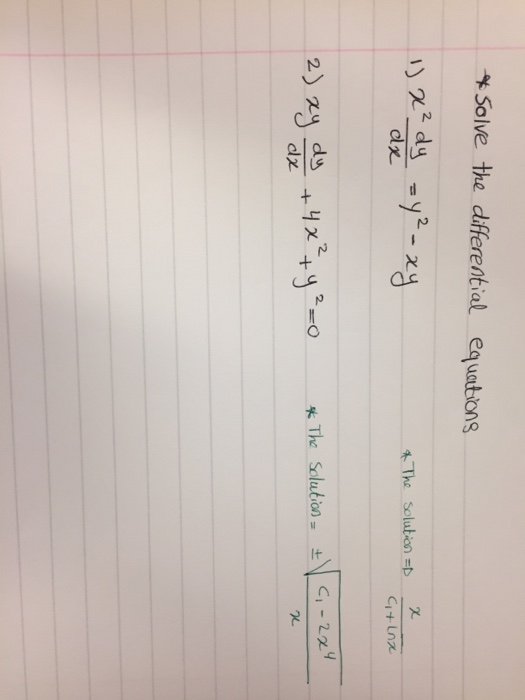 * Solve the differential equations
1) x² dy/dx = y² - xy
* The solution ⇒ x/(c₁ + lnx)
2) xy dy/dx + 4x² + y² = 0
* The solution = ± √(c₁ - 2x⁴)/x